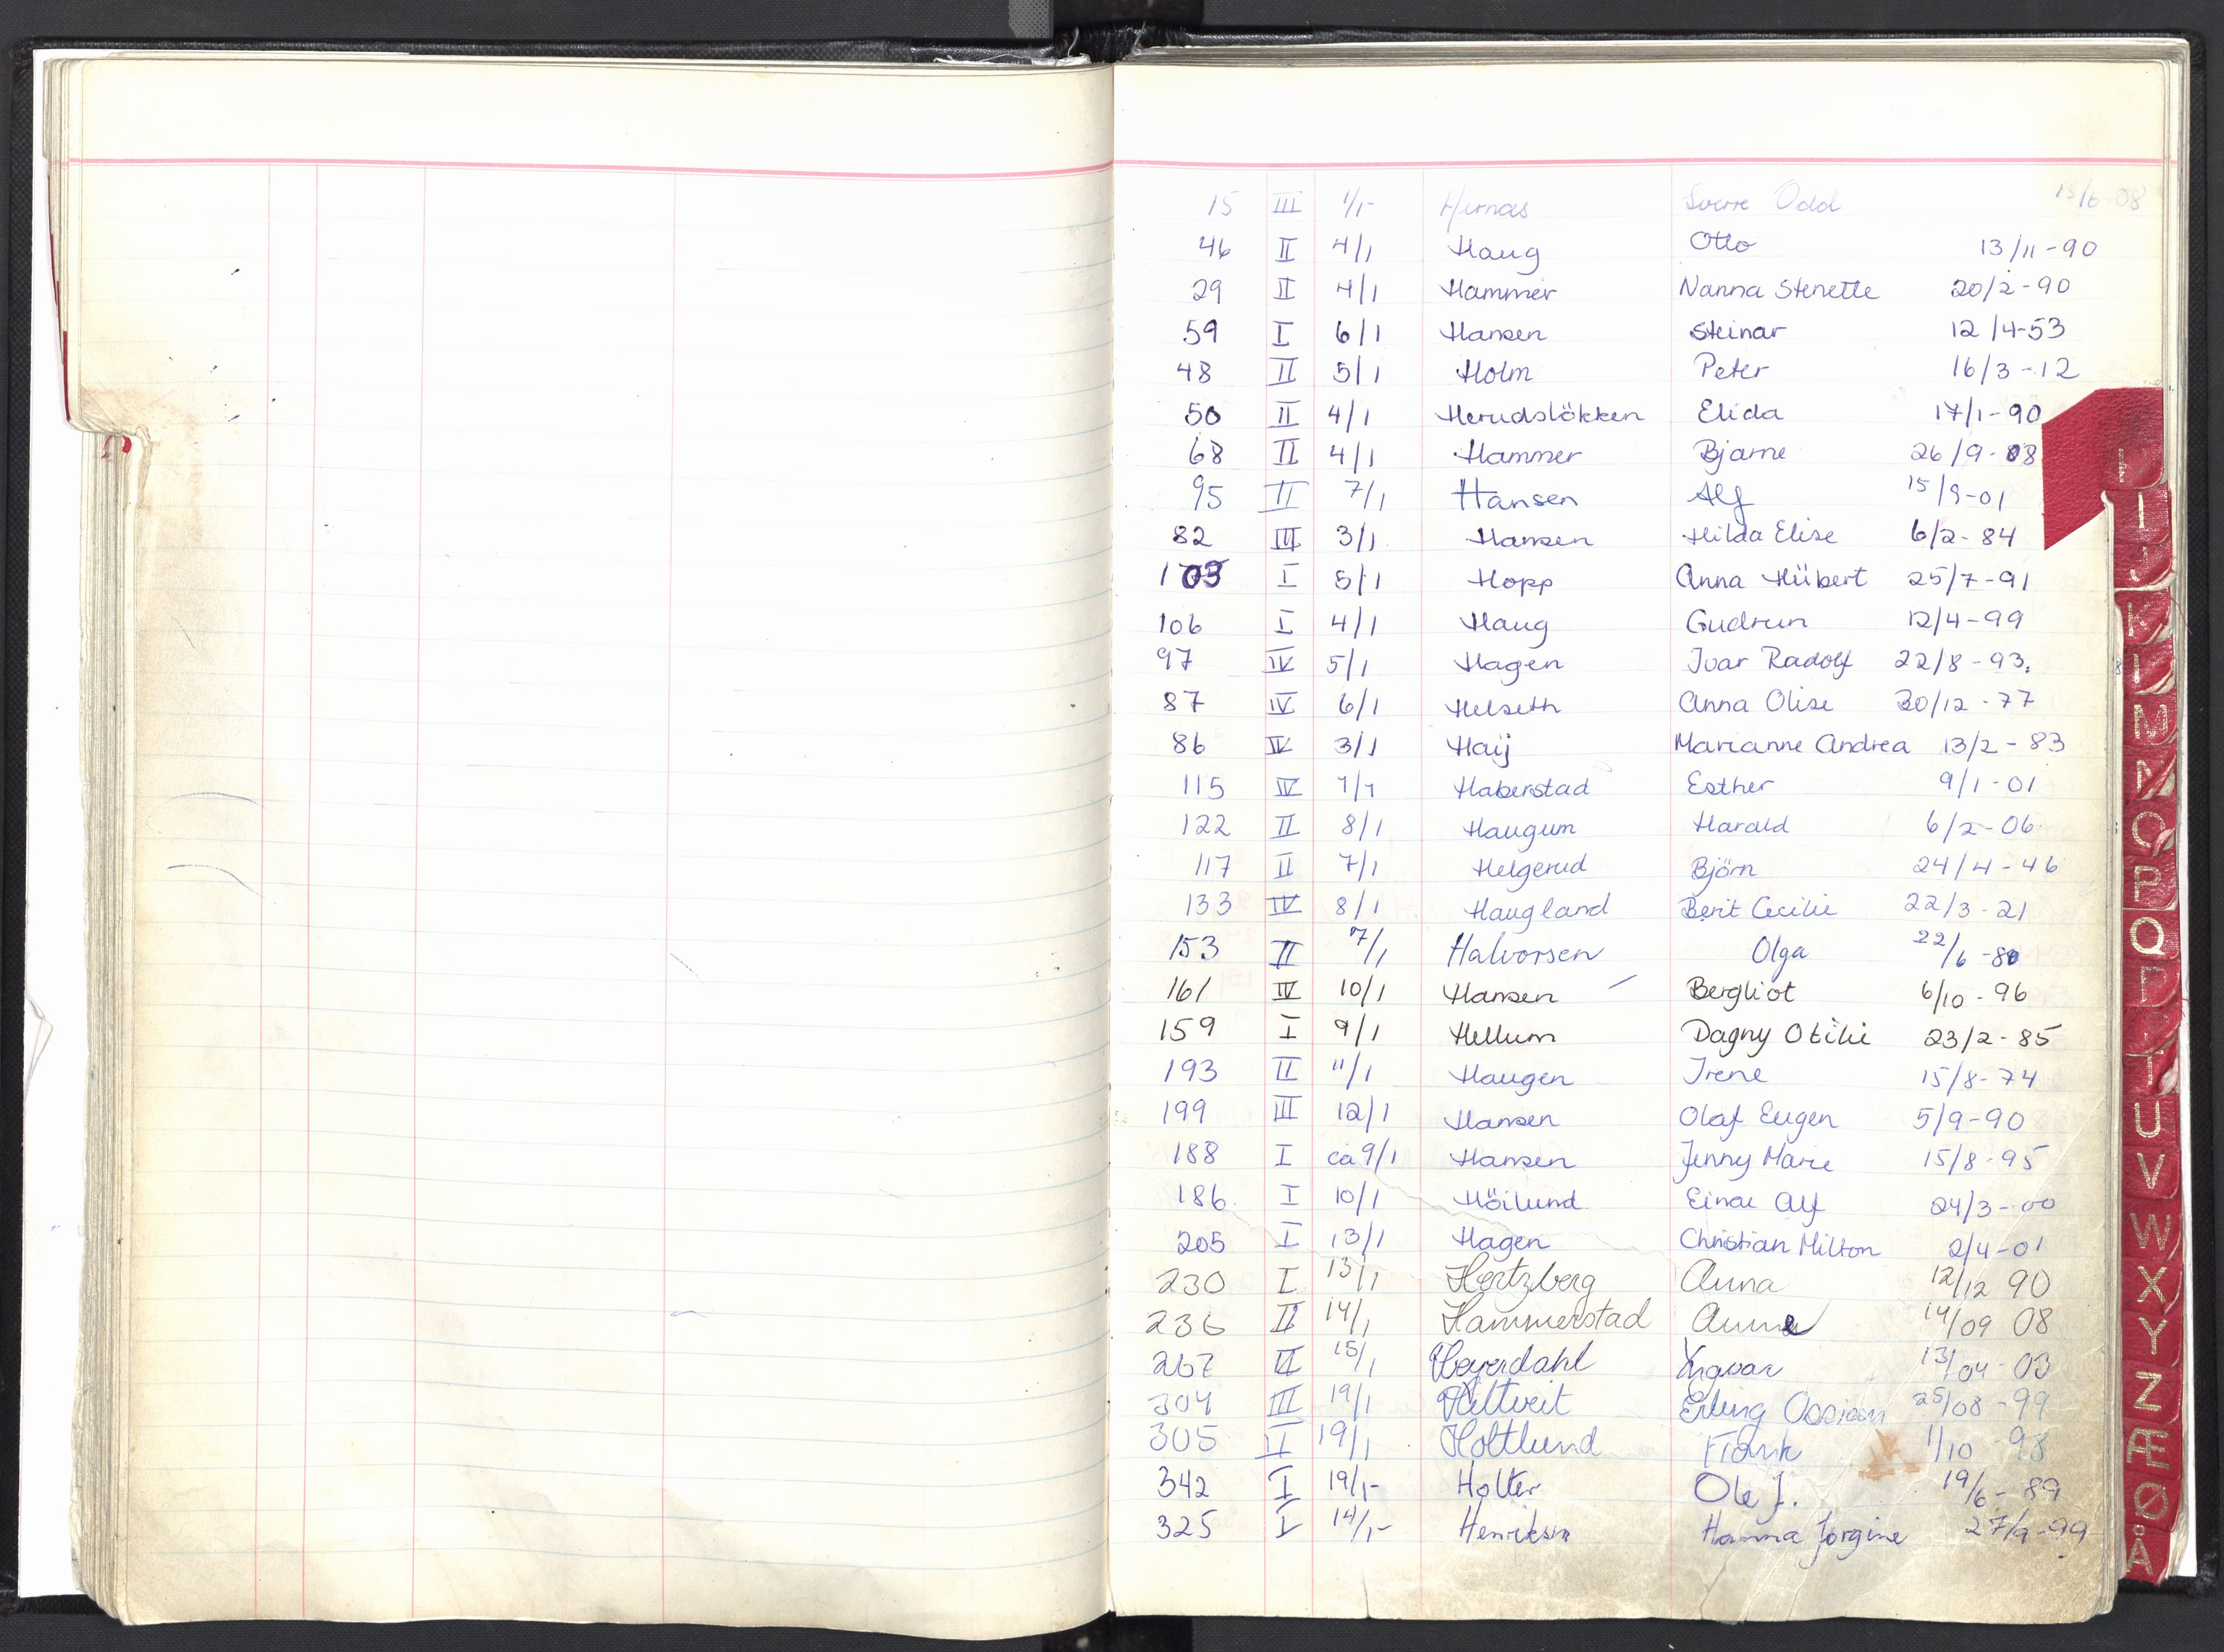 15 III 1/1- Hernæs Sverre Odd 13/6-08
46 II 4/1 Haug Otto 13/11-90
29 II 4/1 Hammer Nanna Stenette 20/2-90
59 I 6/1 Hansen Steinar 12/4-53
48 II 5/1 Holm Peter 16/3-12
50 II 4/1 Herudslökken Elida 17/1-90
68 II 4/1 Hammer Bjarne 26/9-08
95 II 7/1 Hansen Alf 15/9-01
82 III 3/1 Hansen Hilda Elise 6/2-84
103 I 5/1 Hopp Anna Hübert 25/7-91
106 I 4/1 Haug Gudrun 12/4-99
97 IV 5/1 Hagen Ivar Radolf 22/8-93.
87 IV 6/1 Helseth Anna Olise 30/12-77
86 IV 3/1 Haij Marianne Andrea 13/2-83
115 IV 7/1 Haberstad Esther 9/1-01
122 II 8/1 Haugum Harald 6/2-06
117 II 7/1 Helgerud Björn 24/4-46
133 IV 8/1 Haugland Berit Cecilie 22/3-21
153 II 7/1 Halvorsen Olga 22/6-80
161 IV 10/1 Hansen Bergliot 6/10-96
159 I 9/1 Hellum Dagny Otilie 23/2-85
193 II 11/1 Haugen Irene 15/8-74
199 III 12/1 Hansen Olaf Eugen 5/9-90
188 I ca 9/1 Hansen Jenny Marie 15/8-95
186. I 10/1 Höilund Einar Alf 24/3-00
205 I 13/1 Hagen Christian Milton 2/4-01
230 I 13/1 Hertzberg Anna 12/12 90
236 II 14/1 Hammerstad Anne 14/09 08
267 II 15/1 Heyerdahl Yngvar 13/04-03
304 III 19/1 Hiltveit Erling Ossian 25/08-99
305 I 19/1 Holtlund Frank 1/10-98
342 I 19/1- Holter Ole J. 19/6-89
325 I 14/1- Henriksen Hanna Jorgine 27/9-99
I
J
K
L
M
N
O
P
Q
R
T
U
V
W
X
Y
Z
Æ
Ø
Å